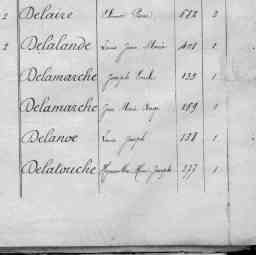 2 Delaire Pierre 2
2 Delalande Louis Jean Marie 401 1
Delamarche Joseph 139 1
Delamarche Jean Marie 189 1
Delanoe Louis Joseph 138 1
Delatouche Hyacinthe Marie Joseph 277 1